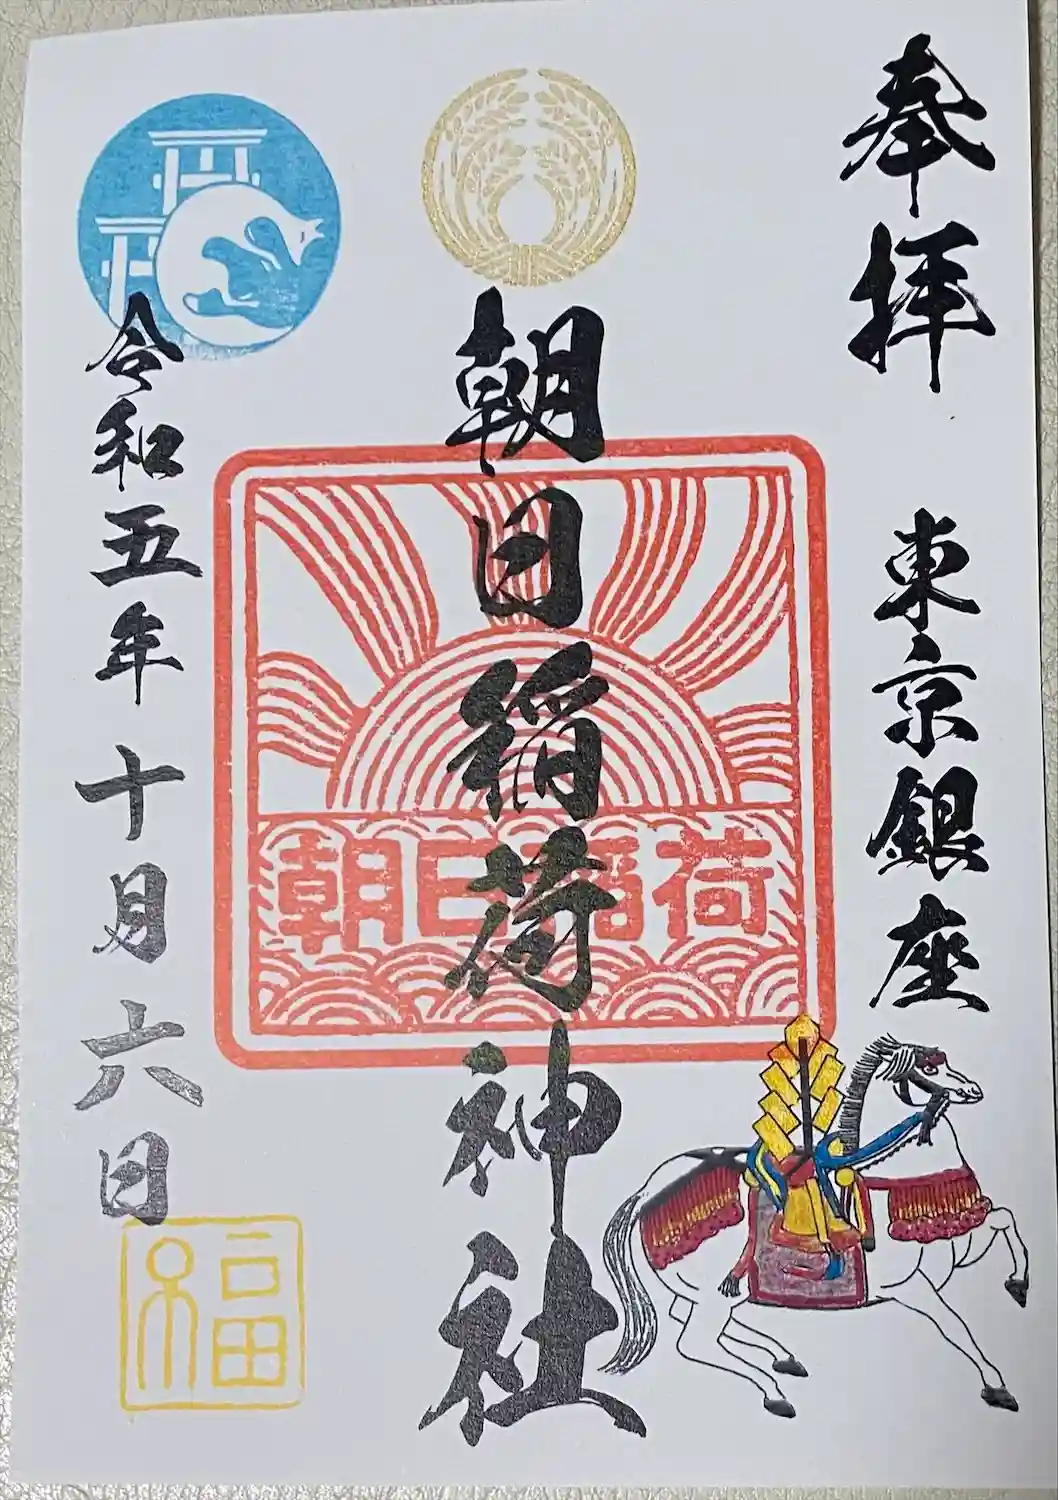 奉拝
東京銀座
朝日稲荷神社
朝日稲荷
令和五年十月六日
福